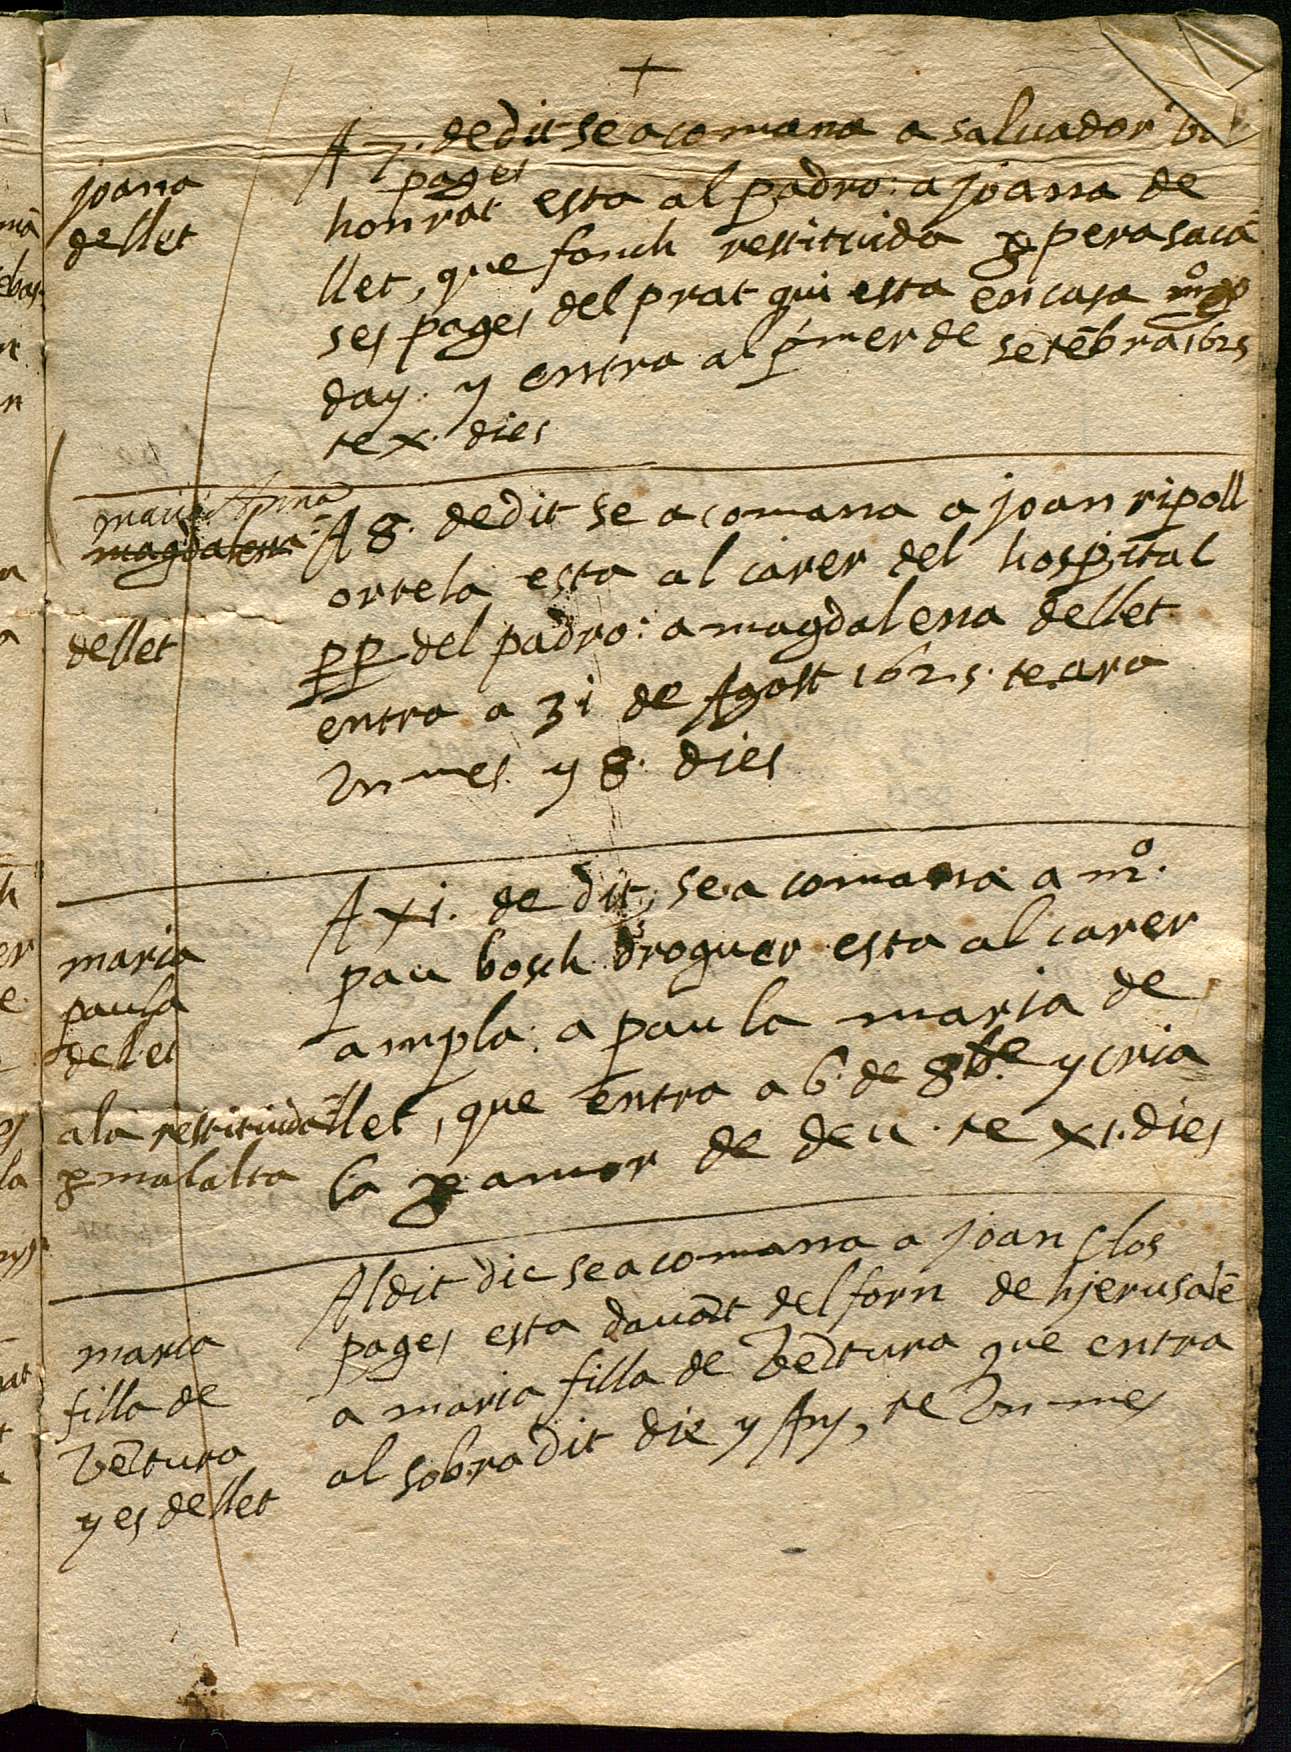 +
joana
dellet
A 7. de dit se acomana a salvador
pages
honrat esta al padro: a joana de
llet, que fonch restituida p pera saca
ses pages del prat qui esta en casa
day. y entra al pmer de setẽbra 1625
te x. dies
maria Anna
magdalena
dellet
A 8. de dit se acomana a joan ripoll
ortela esta al carer del hospital
pp del padro: a magdalena dellet
entra a 31 de Agost 1625. te ara
un mes y 8. dies
maria
paula
de let
a la restituida
p malalta
A xi. de dit, se a comana a mº.
pau bosch droguer esta al carer
ampla: a paula maria de
llet, que entra a 6. de 8bre y cria
la p amor de deu. te xi. dies
maria
filla de
Vẽtura
y es dellet
Al dit die se acomana a joan Clos
pages esta davãt del forn de hjerusalẽ
a maria filla de Vẽtura que entra
al sobradit die y Any, te un mes